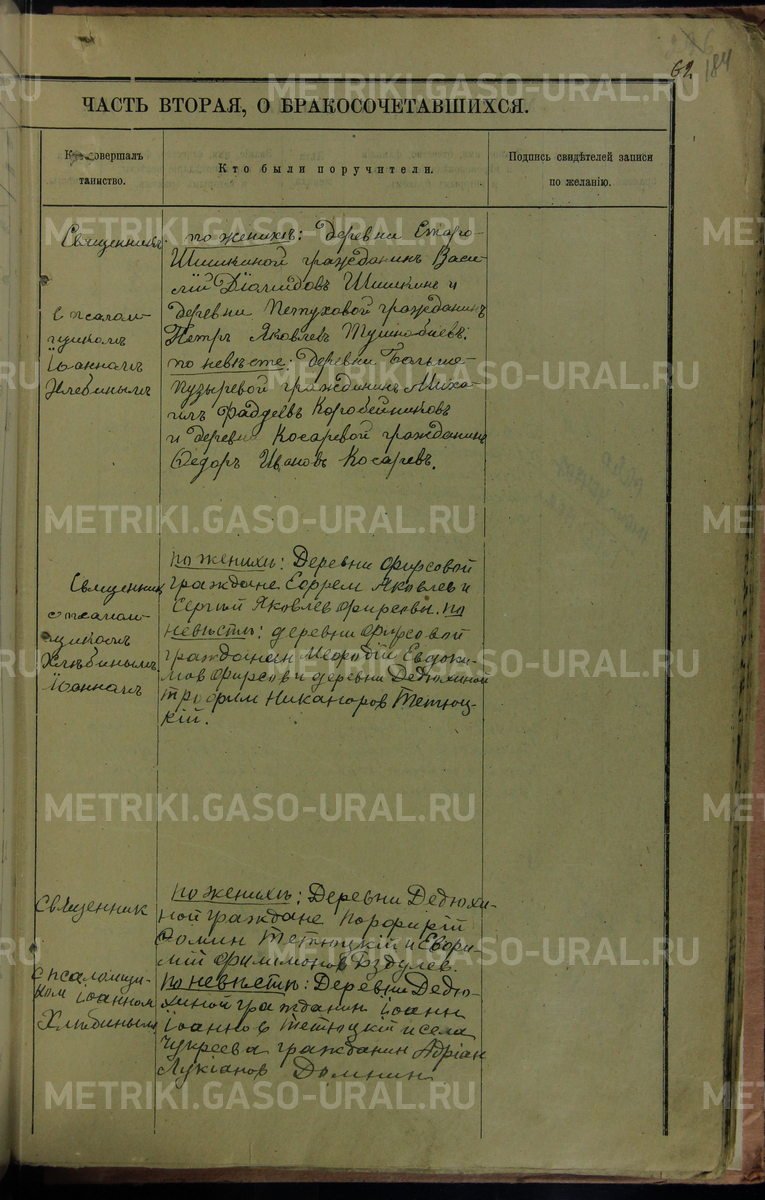 62
184
ЧАСТЬ ВТОРАЯ, О БРАКОСОЧЕТАВШИХСЯ.
Кто совершалъ
таинство.
Кто были поручители.
Подпись свидѣтелей записи
по желанію.
Священникъ
с псалом-
щикомъ
Іоанномъ
Хлебинымъ
по женихѣ: деревни Старо-
Шишкиной гражданинъ Васи-
лій Діомидовъ Шишкинъ и
деревни Петуховой гражданинъ
Петръ Яковлевъ Тушнобаевъ.
по невѣсте: деревни Больше-
пузыревой гражданинъ Миха-
илъ Фаддеевъ Коробейниковъ
и деревни Косаревой гражданинъ
Ѳедоръ Ивановъ Косаревъ.
Священник
с псалом-
щикомъ
Хлѣбинымъ
Іоанномъ
по женихѣ: Деревни Фирсовой
граждане Ефрем Яковлев и
Сергій Яковлев Фирсовы. по
невѣстѣ: деревни Фирсовой
гражданин Меѳодій Евдоки-
мов Фирсов и деревни Дедюхиной
Трофим Никаноров Тетюц-
кій.
Священник
с псаломщи-
ком Іоанном
Хлѣбиным
по женихѣ: Деревни Дедюхи-
ной граждане Порфирій
Фомин Тетюцкій и Евфи-
мій Филимонов Бздулев.
По невѣстѣ: Деревни Дедю-
хиной гражданин Іоанн
Іоаннов Тетюцкій и села
Чукреева гражданин Адріан
Лукіанов Домнин.
METRIKI.GASO-URAL.RU